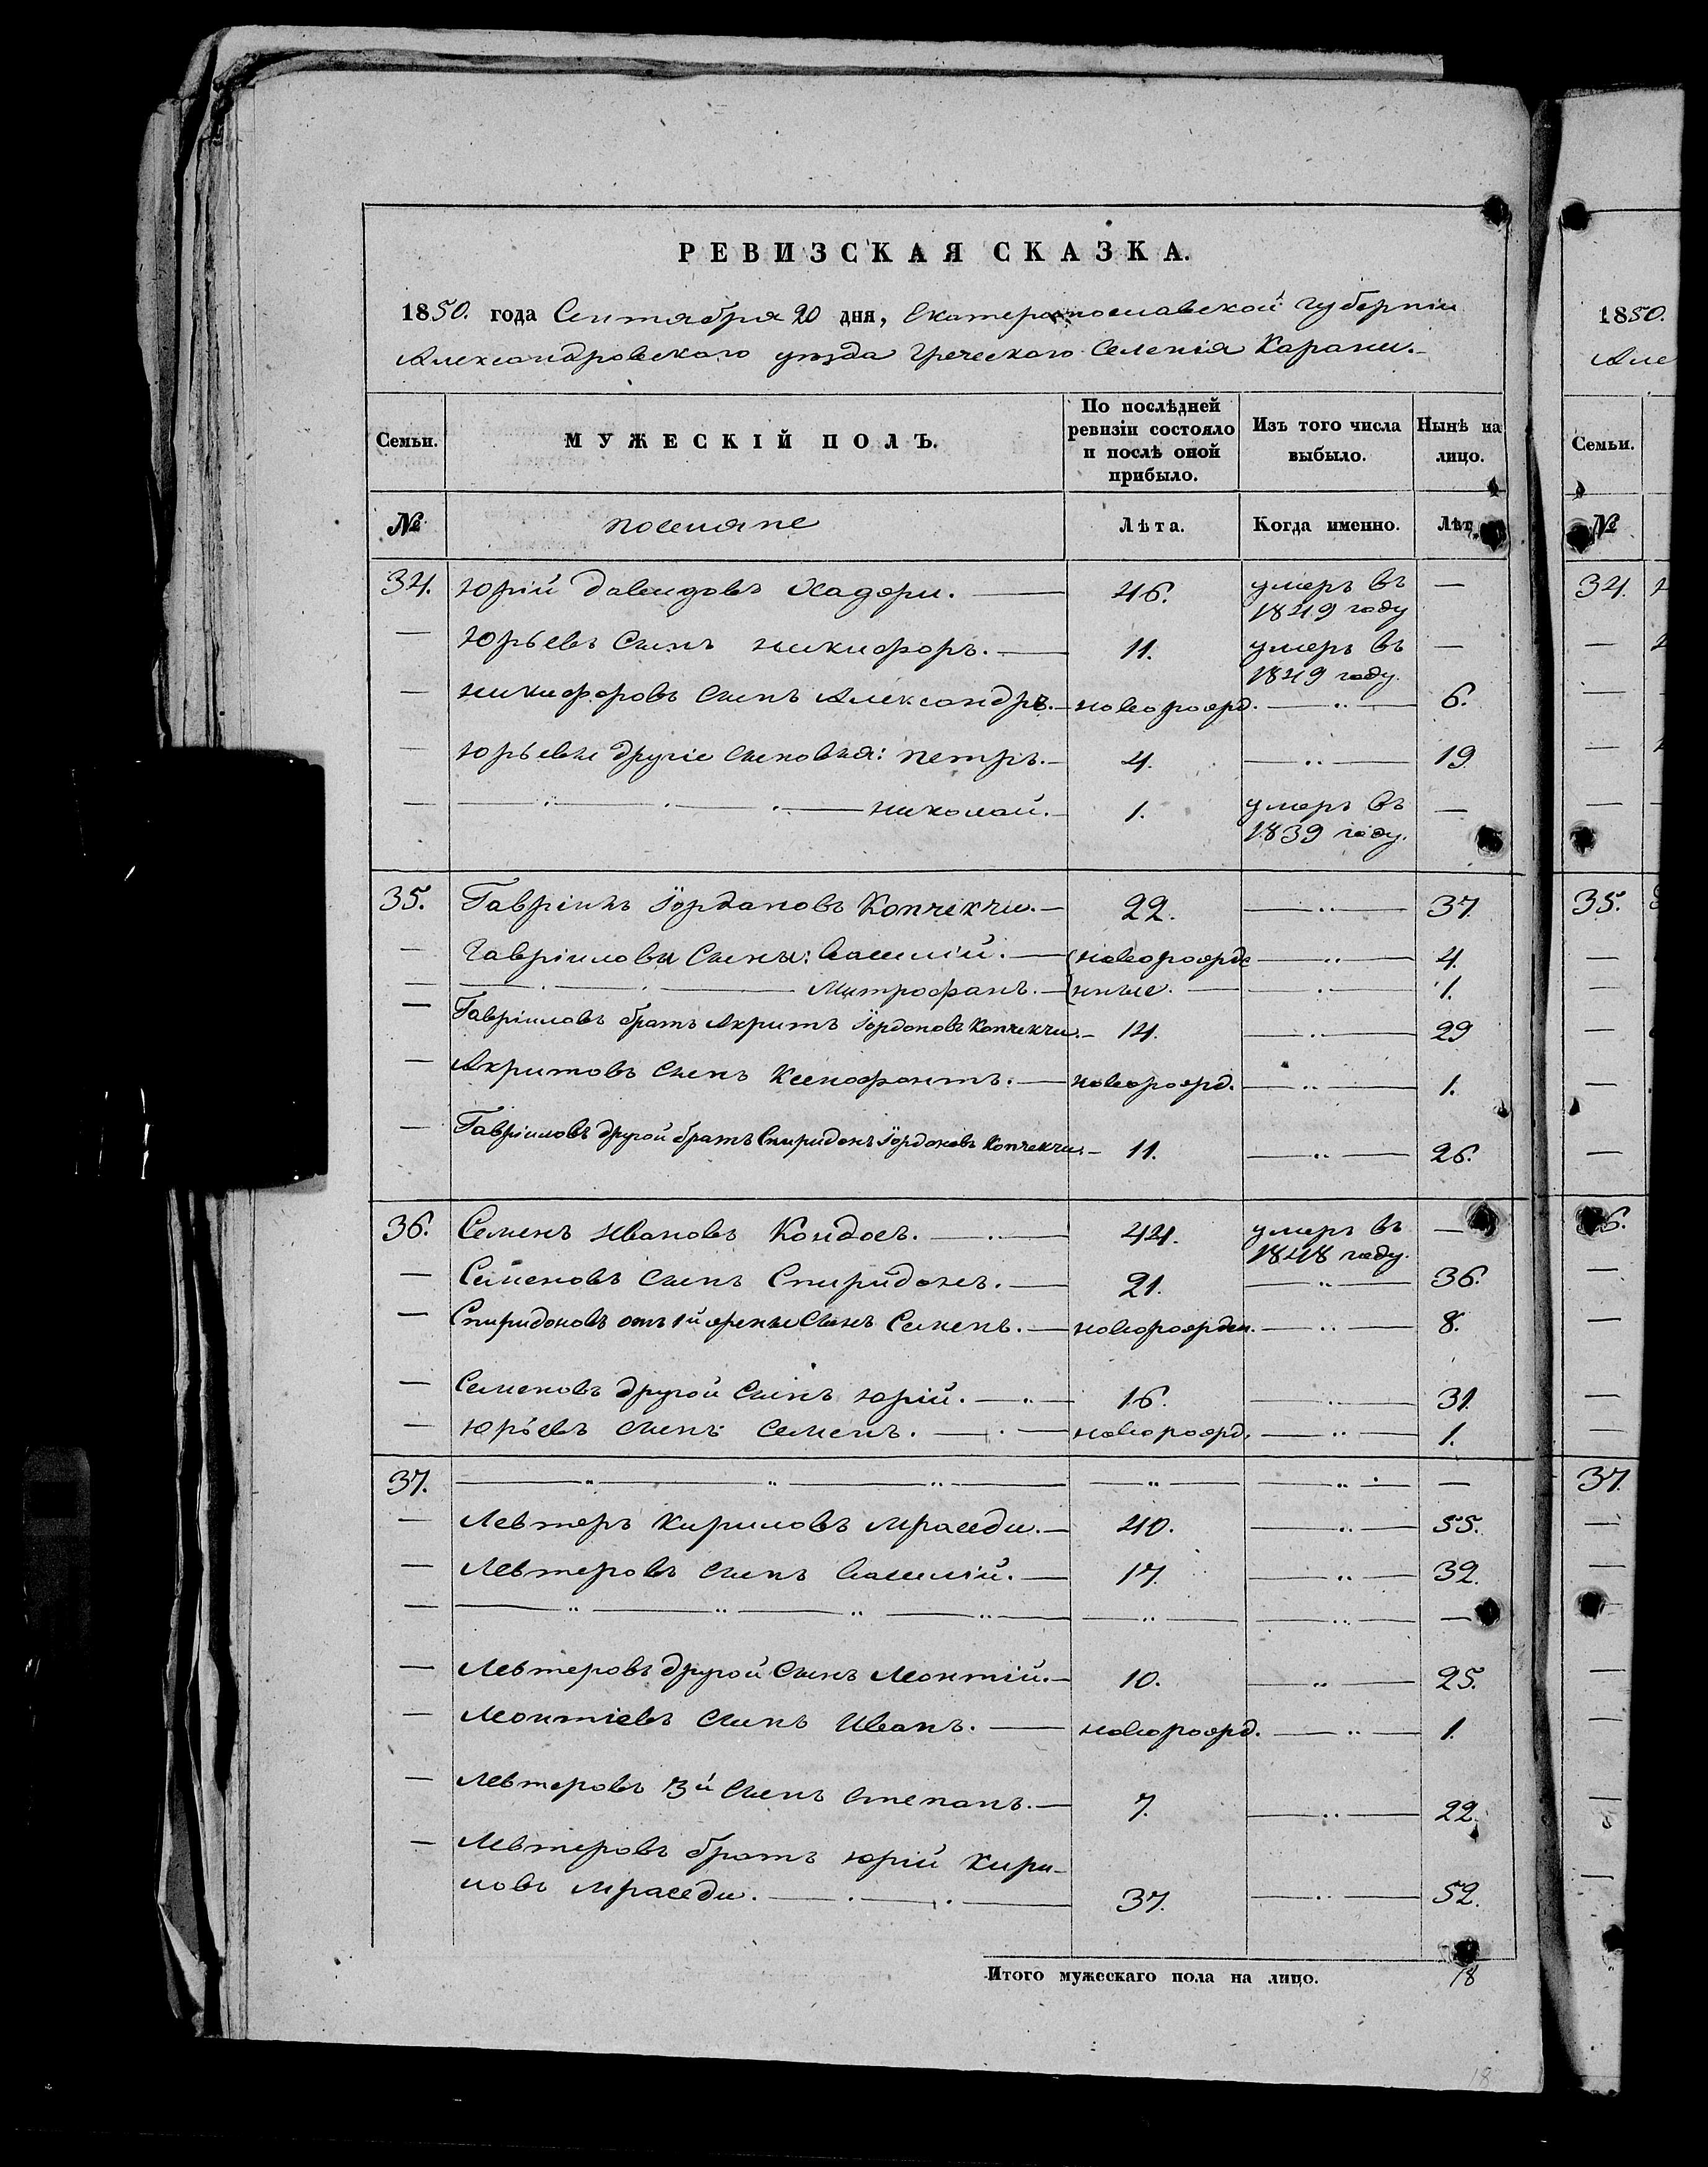 РЕВИЗСКАЯ СКАЗКА.
1850. года Сентября 20 дня, Екатеринославской Губерніи
Александровскаго уѣзда Греческаго Селенія Карани.
Семьи.
МУЖЕСКІЙ ПОЛЪ.
По послѣдней ревизіи состояло и послѣ оной прибыло.
Изъ того числа выбыло.
Нынѣ на лицо.
№
поселяне
Лѣта.
Когда именно.
Лѣт
34. Юрій Давидовъ Хаджи. — 46. умеръ въ 1849 году —
— Юрьевъ Сынъ Никифоръ. — 11. умеръ въ 1849 году. —
— Никифоровъ Сынъ Александръ. — новорожд. — 6.
— Юрьевы другіе сыновья: Петръ. — 4. — 19
— Николай. — 1. умеръ въ 1839 году. —
35. Гавріилъ Іордановъ Копчекчи. — 22. — 37.
— Гавріиловы Сыны: Василій. — новорожде — 4.
— Митрофанъ. — нные. — 1.
— Гавріиловъ братъ Акритъ Іордановъ Копчекчи. — 14. — 29
— Акритовъ Сынъ Ксенофонтъ. — новорожд. — 1.
— Гавріиловъ другой братъ Спиридонъ Іордановъ Копчекчи. — 11. — 26.
36. Семенъ Ивановъ Кондоеъ. — 44. умеръ въ 1848 году. —
— Семеновъ сынъ Спиридонъ. — 21. — 36.
— Спиридоновъ отъ 1й жены Сынъ Семенъ. — новорожден. — 8.
— Семеновъ другой Сынъ Юрій. — 16. — 31.
— Юрьевъ сынъ Семенъ. — новорожд. — 1.
37. —
— Левтеръ Кириловъ Мраседи. — 40. — 55.
— Левтеровъ сынъ Василій. — 17. — 32.
—
— Левтеровъ другой Сынъ Леонтій. — 10. — 25.
— Леонтіевъ сынъ Иванъ. — новорожд. — 1.
— Левтеровъ 3й Сынъ Степанъ. — 7. — 22.
— Левтеровъ братъ Юрій Кири-
ловъ Мраседи. — 37. — 52.
Итого мужескаго пола на лицо. 18
18
1850.
Але
Семьи.
№
34.
35.
36.
37.